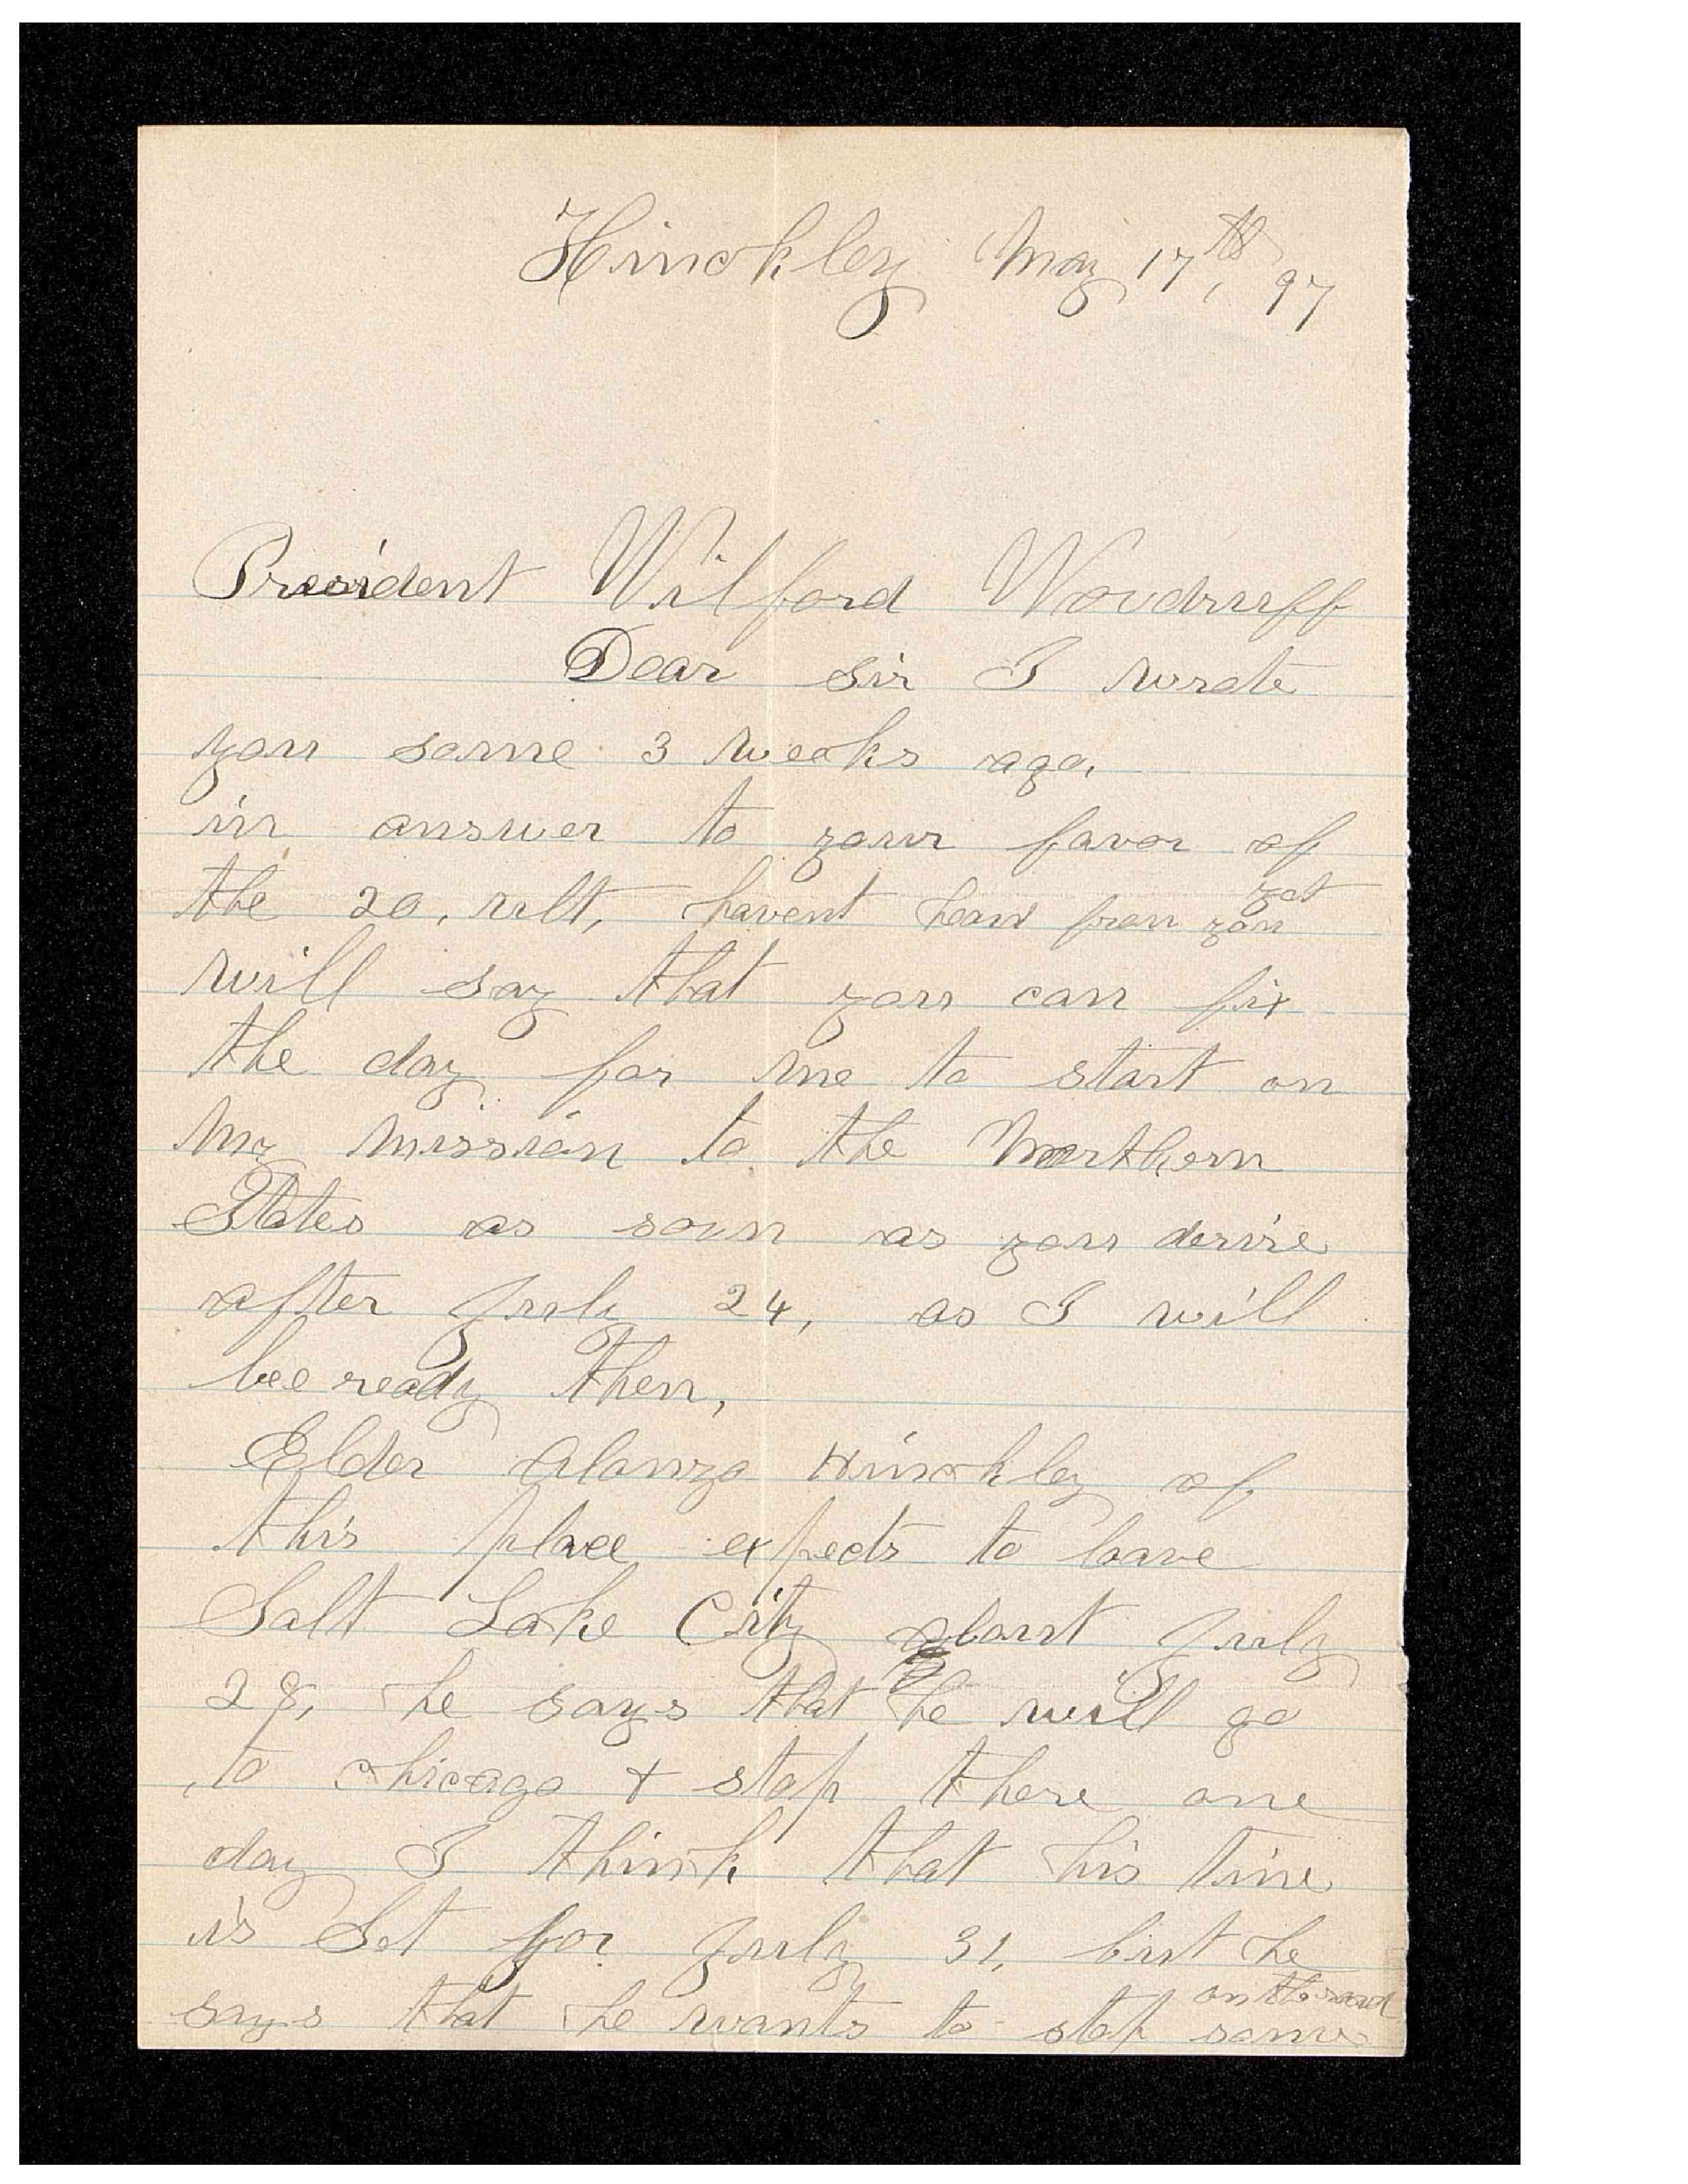 Hinckley May 17th, 97
President Wilford Woodruff
Dear sir I wrote
you some 3 weeks ago,
in answer to your favor of
the 20, ult, havent hear from you yet
will say that you can fix
the day for me to start on
my mission to the Northern
States as soon as you desire
after July 24, as I will
bee ready then,
Elder Alonzo Hinckley of
this place expects to leave
Salt Lake City about July
28, he says that he will go
to chicago & stop there one
day I think that his time
is Set for July 31, but he
says that he wants to stop some on the road